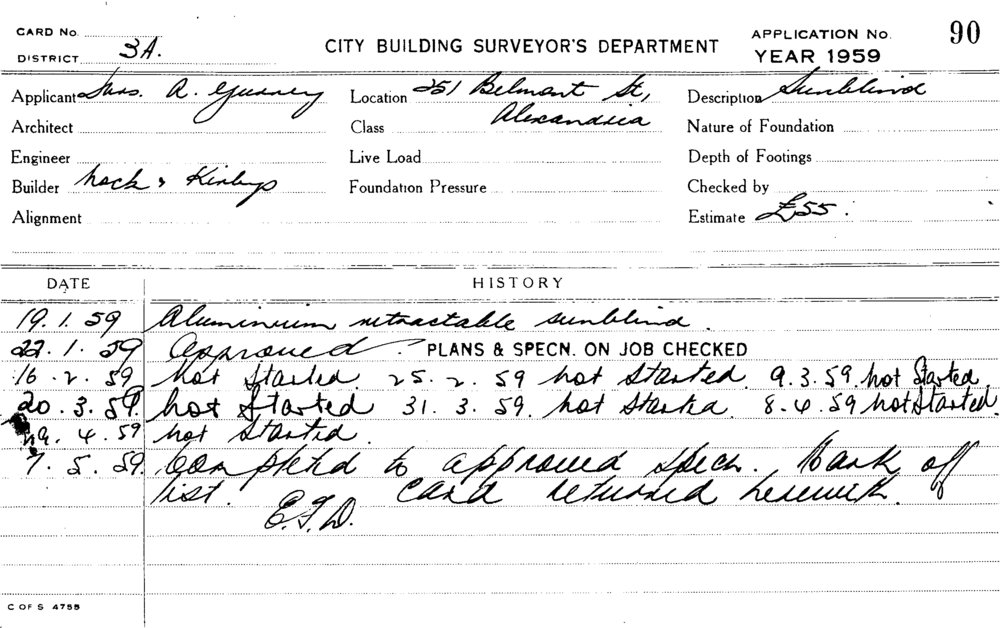 CARD No.
DISTRICT 3A.
CITY BUILDING SURVEYOR'S DEPARTMENT
APPLICATION No. 90
YEAR 1959
Applicant A.
Location 251 Belmont St,
Alexandria
Description Sunblind
Architect
Class
Nature of Foundation
Engineer
Live Load
Depth of Footings
Builder &
Foundation Pressure
Checked by
Alignment
Estimate £55.
DATE HISTORY
19.1.59 Aluminium retractable sunblind.
22.1.59 Approved. PLANS & SPECN. ON JOB CHECKED
16.2.59 Not Started. 25.2.59 not started. 9.3.59 not Started.
20.3.59. Not Started 31.3.59. not started. 8.4.59 not Started.
4.59 not started.
7.5.59. Completed to approved specn. Mark off
list. Card returned herewith.
C OF S 4755